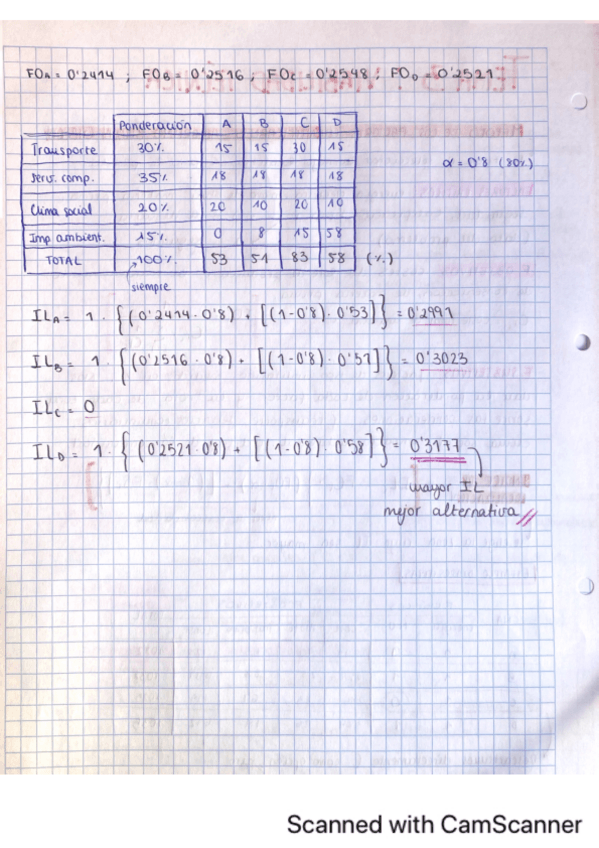 FOA = 0'2414 ; FOB = 0'2516 ; FOC = 0'2548 ; FOD = 0'2521
Ponderación A B C D
Transporte 30% 15 15 30 15
α = 0'8 (80%)
serv. comp. 35% 18 18 18 18
Clima social 20% 20 10 20 10
Imp ambient. 15% 0 8 15 58
TOTAL 100% 53 51 83 58 (%)
siempre
ILA = 1 · {(0'2414 · 0'8) + [(1-0'8) · 0'53]} = 0'2991
ILB = 1 · {(0'2516 · 0'8) + [(1-0'8) · 0'51]} = 0'3023
ILC = 0
ILD = 1 · {(0'2521 · 0'8) + [(1-0'8) · 0'58]} = 0'3177
mayor IL
mejor alternativa
Scanned with CamScanner